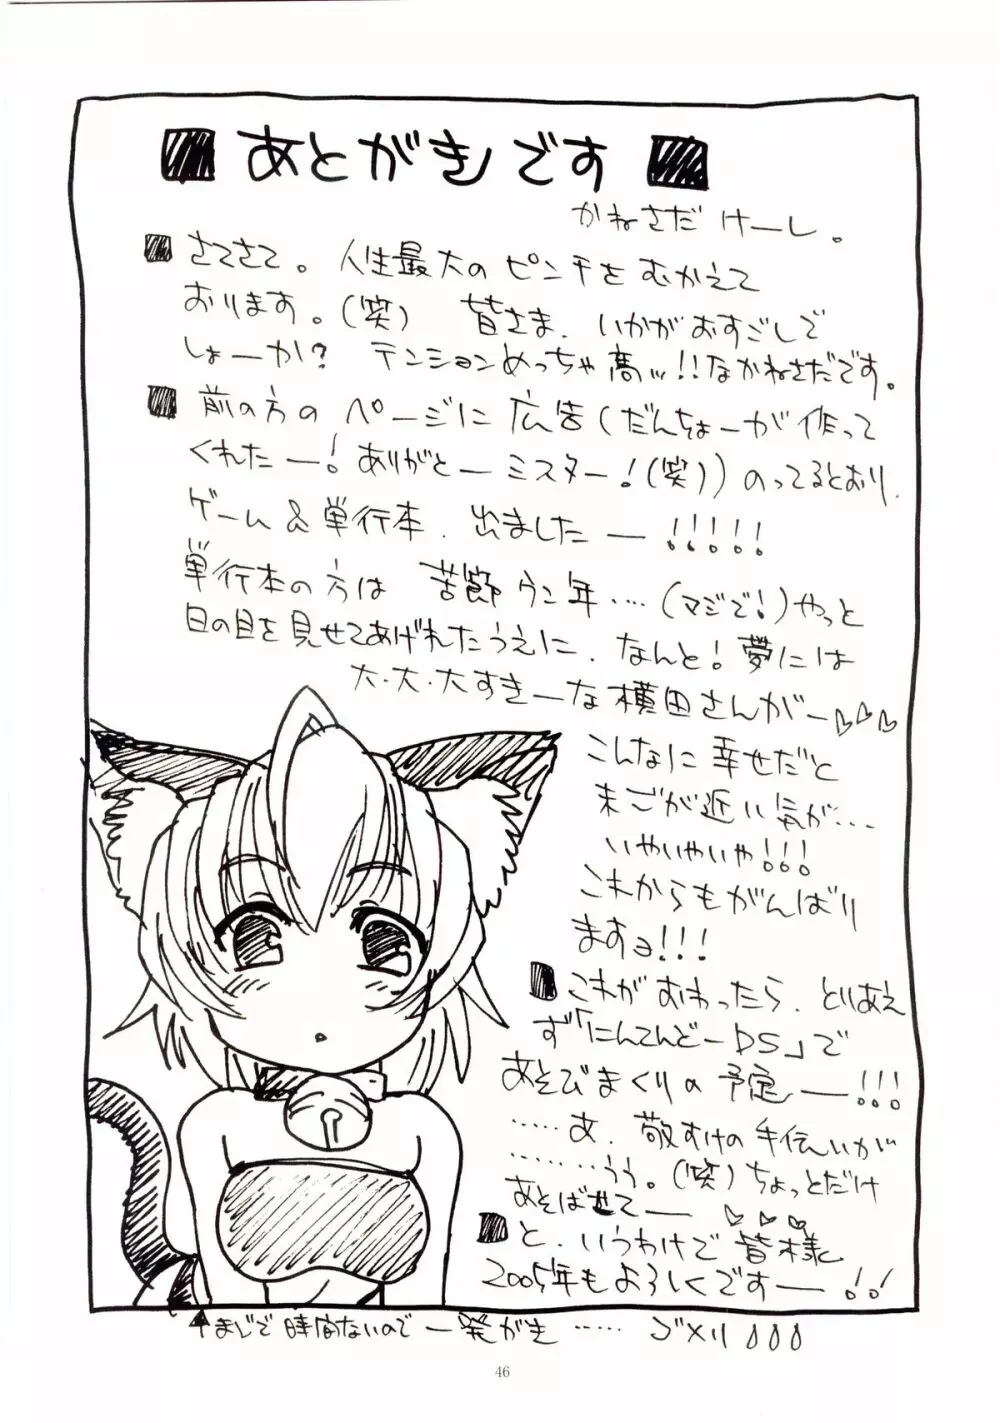 あとがきです
かねさだ けーし。
■さてさて。人生最大のピンチをむかえて
おります。(笑) 皆さま、いかがおすごしで
しょーか? テンションめっちゃ高ッ!!なかねさだです。
■前の方のページに広告(だんちょーが作って
くれたー!ありがとーミスター!(笑))のってるとおり、
ゲーム&単行本、出ましたー!!!!!
単行本の方は苦節ウン年‥‥(マジで!)やっと
日の目を見せてあげれたうえに、なんと!夢には
大・大・大すきーな横田さんがー♡♡♡
こんなに幸せだと
末ごが近い気が‥‥
いやいやいや!!!
これからもがんばり
ますョ!!!
■これがおわったら、とりあえ
ず「にんてんどーDS」で
あそびまくりの予定ー!!!
‥‥‥あ、敬すけの手伝いが
‥‥‥‥うう。(笑)ちょっとだけ
あそばせてー♡♡♡
■と、いうわけで皆様
2005年もよろしくですー!!
↑まじで時間ないので一発がき‥‥‥ゴメリ
46